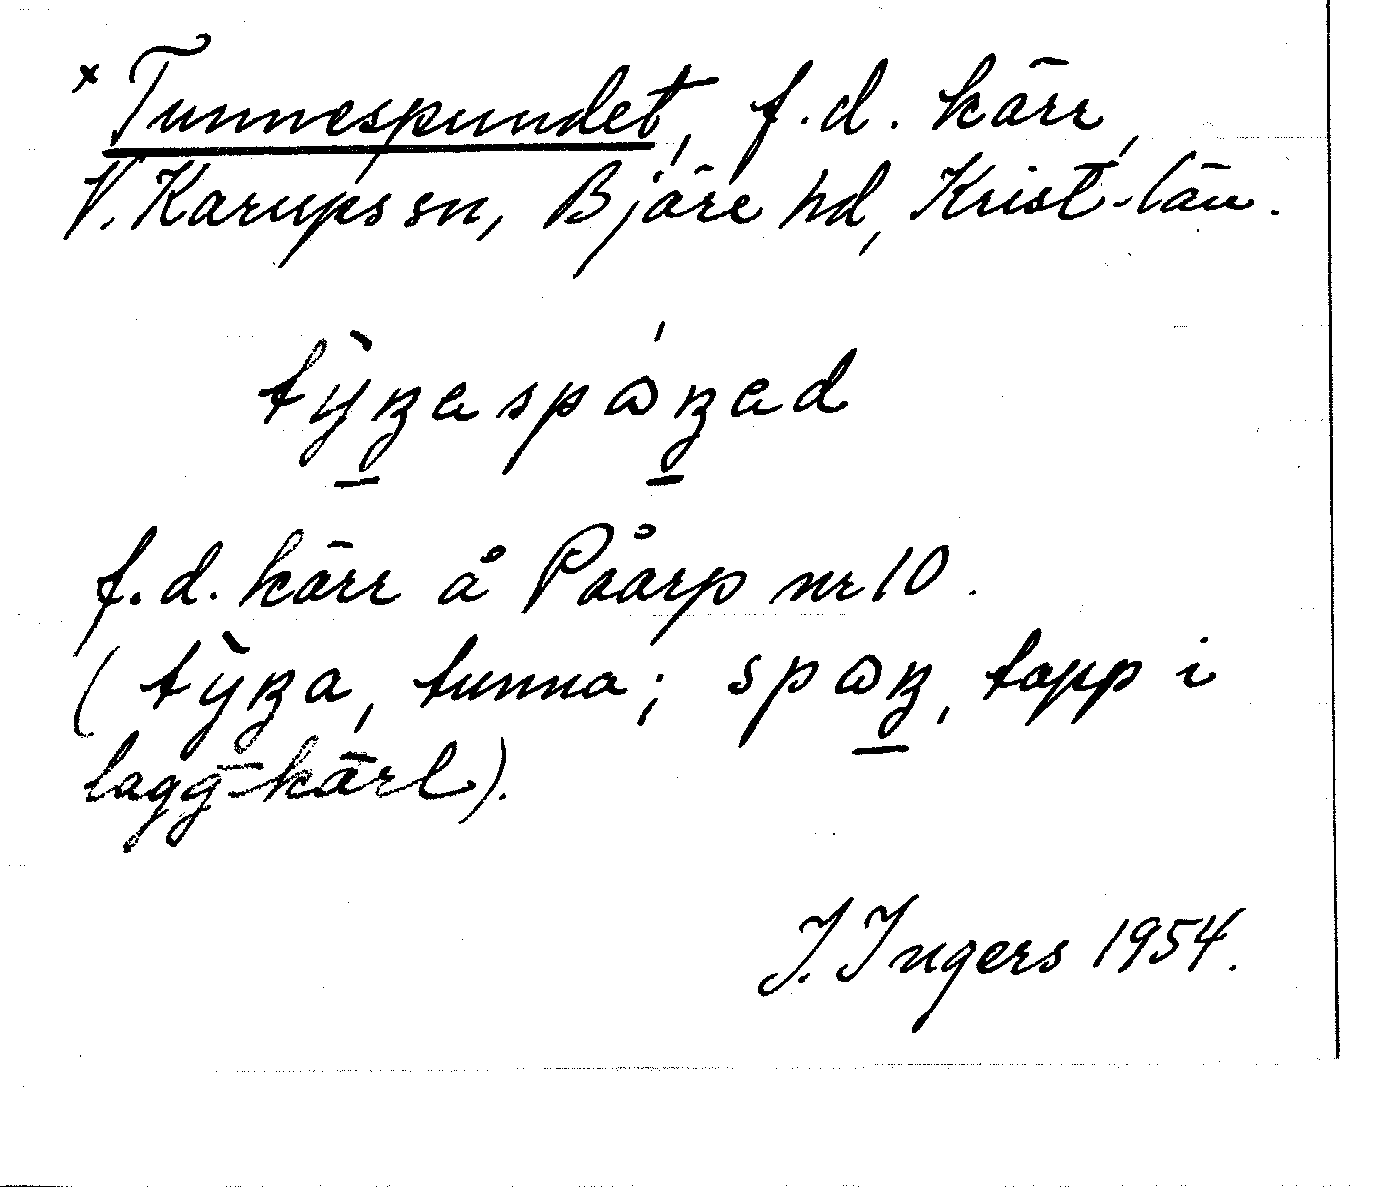 × Tunnespundet, f.d. kärr,
V. Karups sn, Bjäre hd, Krist-län.
f.d. kärr å Påarp nr 10.
tunna; tapp i
laggkärl).
J. Ingers 1954.